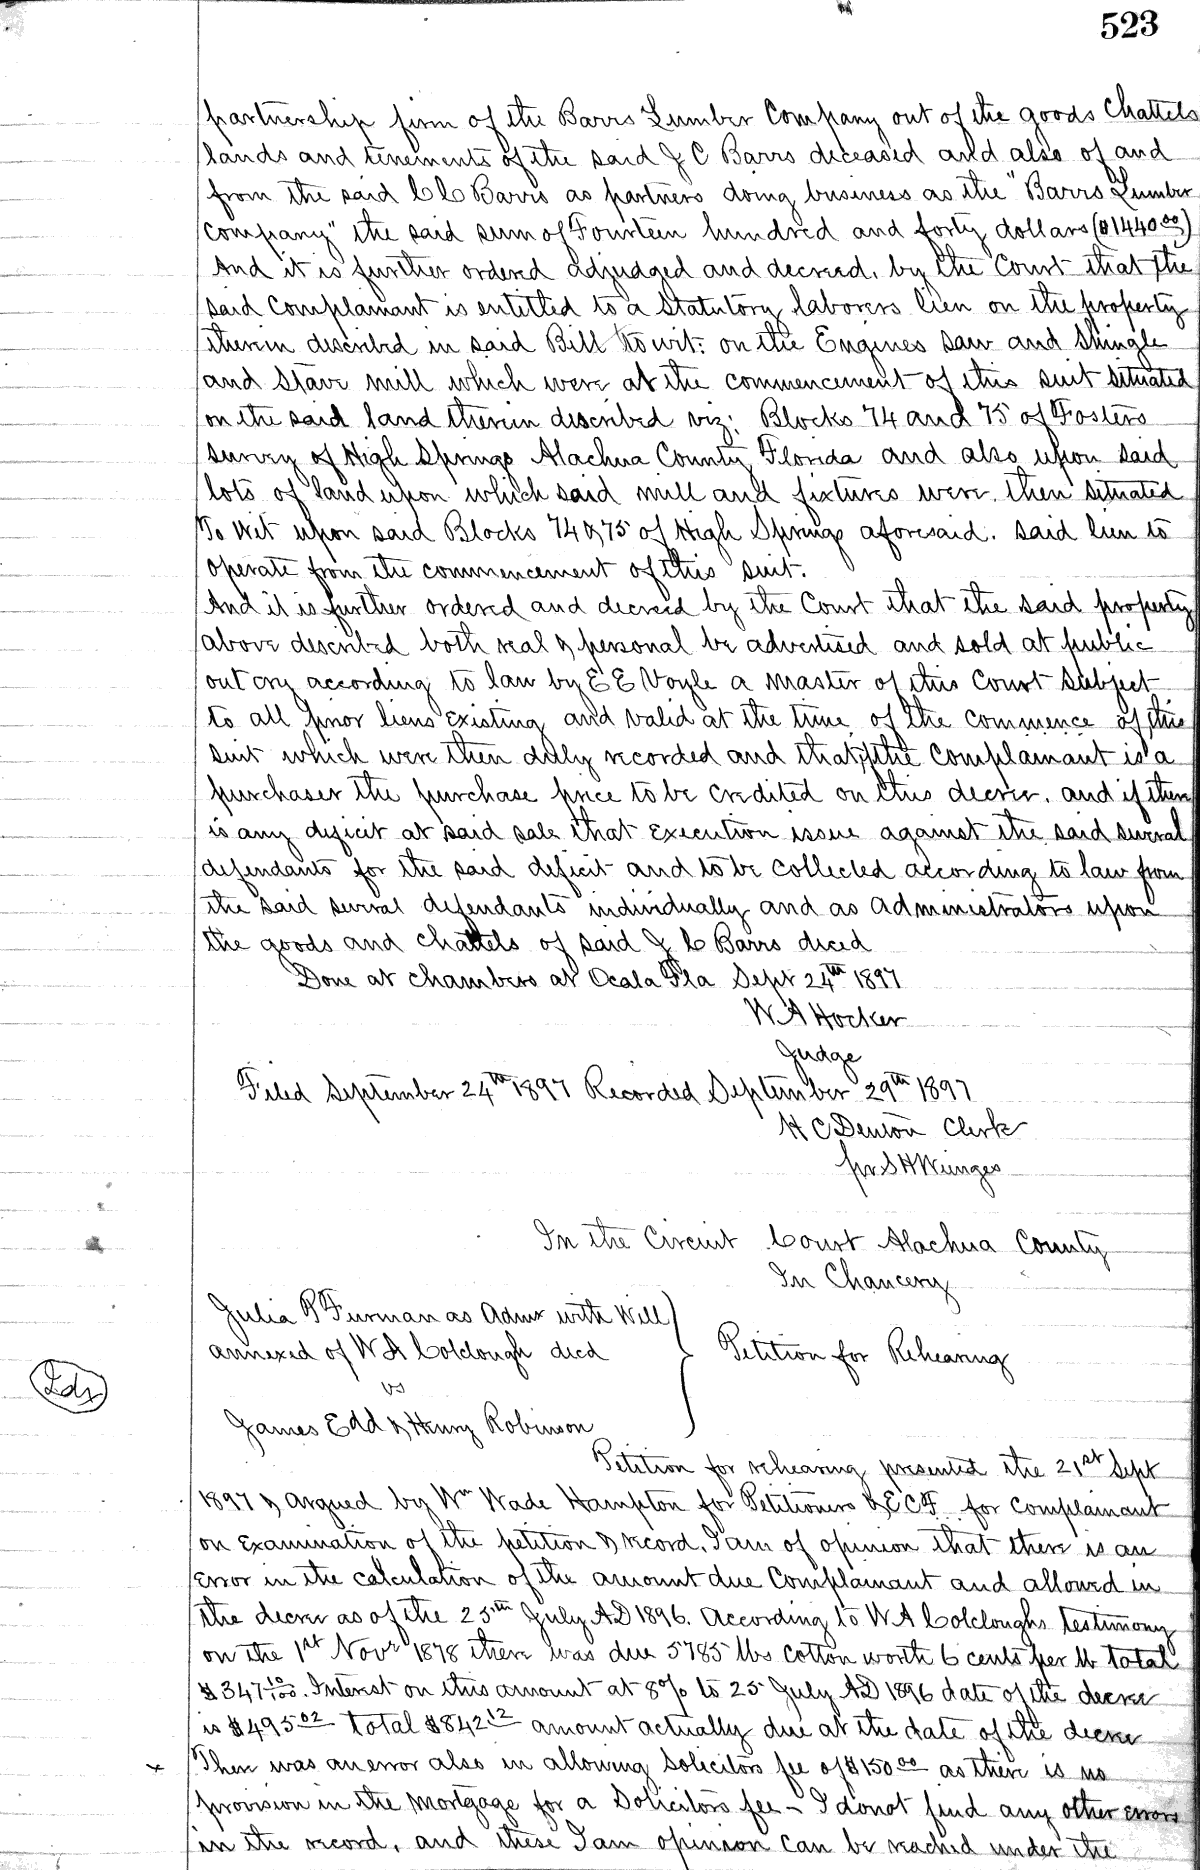 523
partnership firm of the Barrs Lumber Company out of the goods Chattels
lands and tenements of the said J C Barrs deceased and also of and
from the said C C Barrs as partners doing business as the "Barrs Lumber
Company" the said sum of Fourteen hundred and forty dollars ($1440.00)
And it is further ordered adjudged and decreed, by the Court that the
said Complainant is entitled to a Statutory laborers lien on the property
therein described in said Bill to wit: on the Engines Saw and Shingle
and Stave mill which were at the commencement of this suit situated
on the said land therein described viz: Blocks 74 and 75 of Fosters
survey of High Springs Alachua County Florida and also upon said
lots of land upon which said mill and fixtures were then situated
To Wit upon said Blocks 74 & 75 of High Springs aforesaid. said lien to
operate from the commencement of this suit.
And it is further ordered and decreed by the Court that the said property
above described both real & personal be advertised and sold at public
out cry according to law by E E Voyle a Master of this Court Subject
to all prior liens existing and valid at the time of the commence of this
suit which were then duly recorded and that if the Complainant is a
purchaser the purchase price to be credited on this decree. and if there
is any deficit at said sale that execution issue against the said several
defendants for the said deficit and to be collected according to law from
the said several defendants individually and as Administrators upon
the goods and chattels of said J C Barrs deced
Done at chambers at Ocala Fla Sept 24th 1897
W A Hocker
Judge
Filed September 24th 1897 Recorded September 29th 1897
H C Denton Clerk
pr S H Wienges
In the Circuit Court Alachua County
In Chancery
Julia P Furman as Admx with Will
annexed of W A Colclough decd
vs
James Edd & Henry Robinson
Petition for Rehearing
Idx
Petition for rehearing presented the 21st Sept
1897 & argued by Wm Wade Hampton for Petitioners & E C F for Complainant
on Examination of the petition & record, I am of opinion that there is an
Error in the calculation of the amount due Complainant and allowed in
the decree as of the 25th July AD 1896. According to W A Colcloughs testimony
on the 1st Novr 1878 there was due 5785 lbs cotton worth 6 cents per lb total
$347 10/100. Interest on this amount at 8% to 25 July AD 1896 date of the decree
is $495.02 total $842.12 amount actually due at the date of the decree
x There was an error also in allowing Solicitors fee of $150.00 as there is no
provision in the mortgage for a Solicitors fee – I do not find any other errors
in the record, and these I am opinion can be reached under the